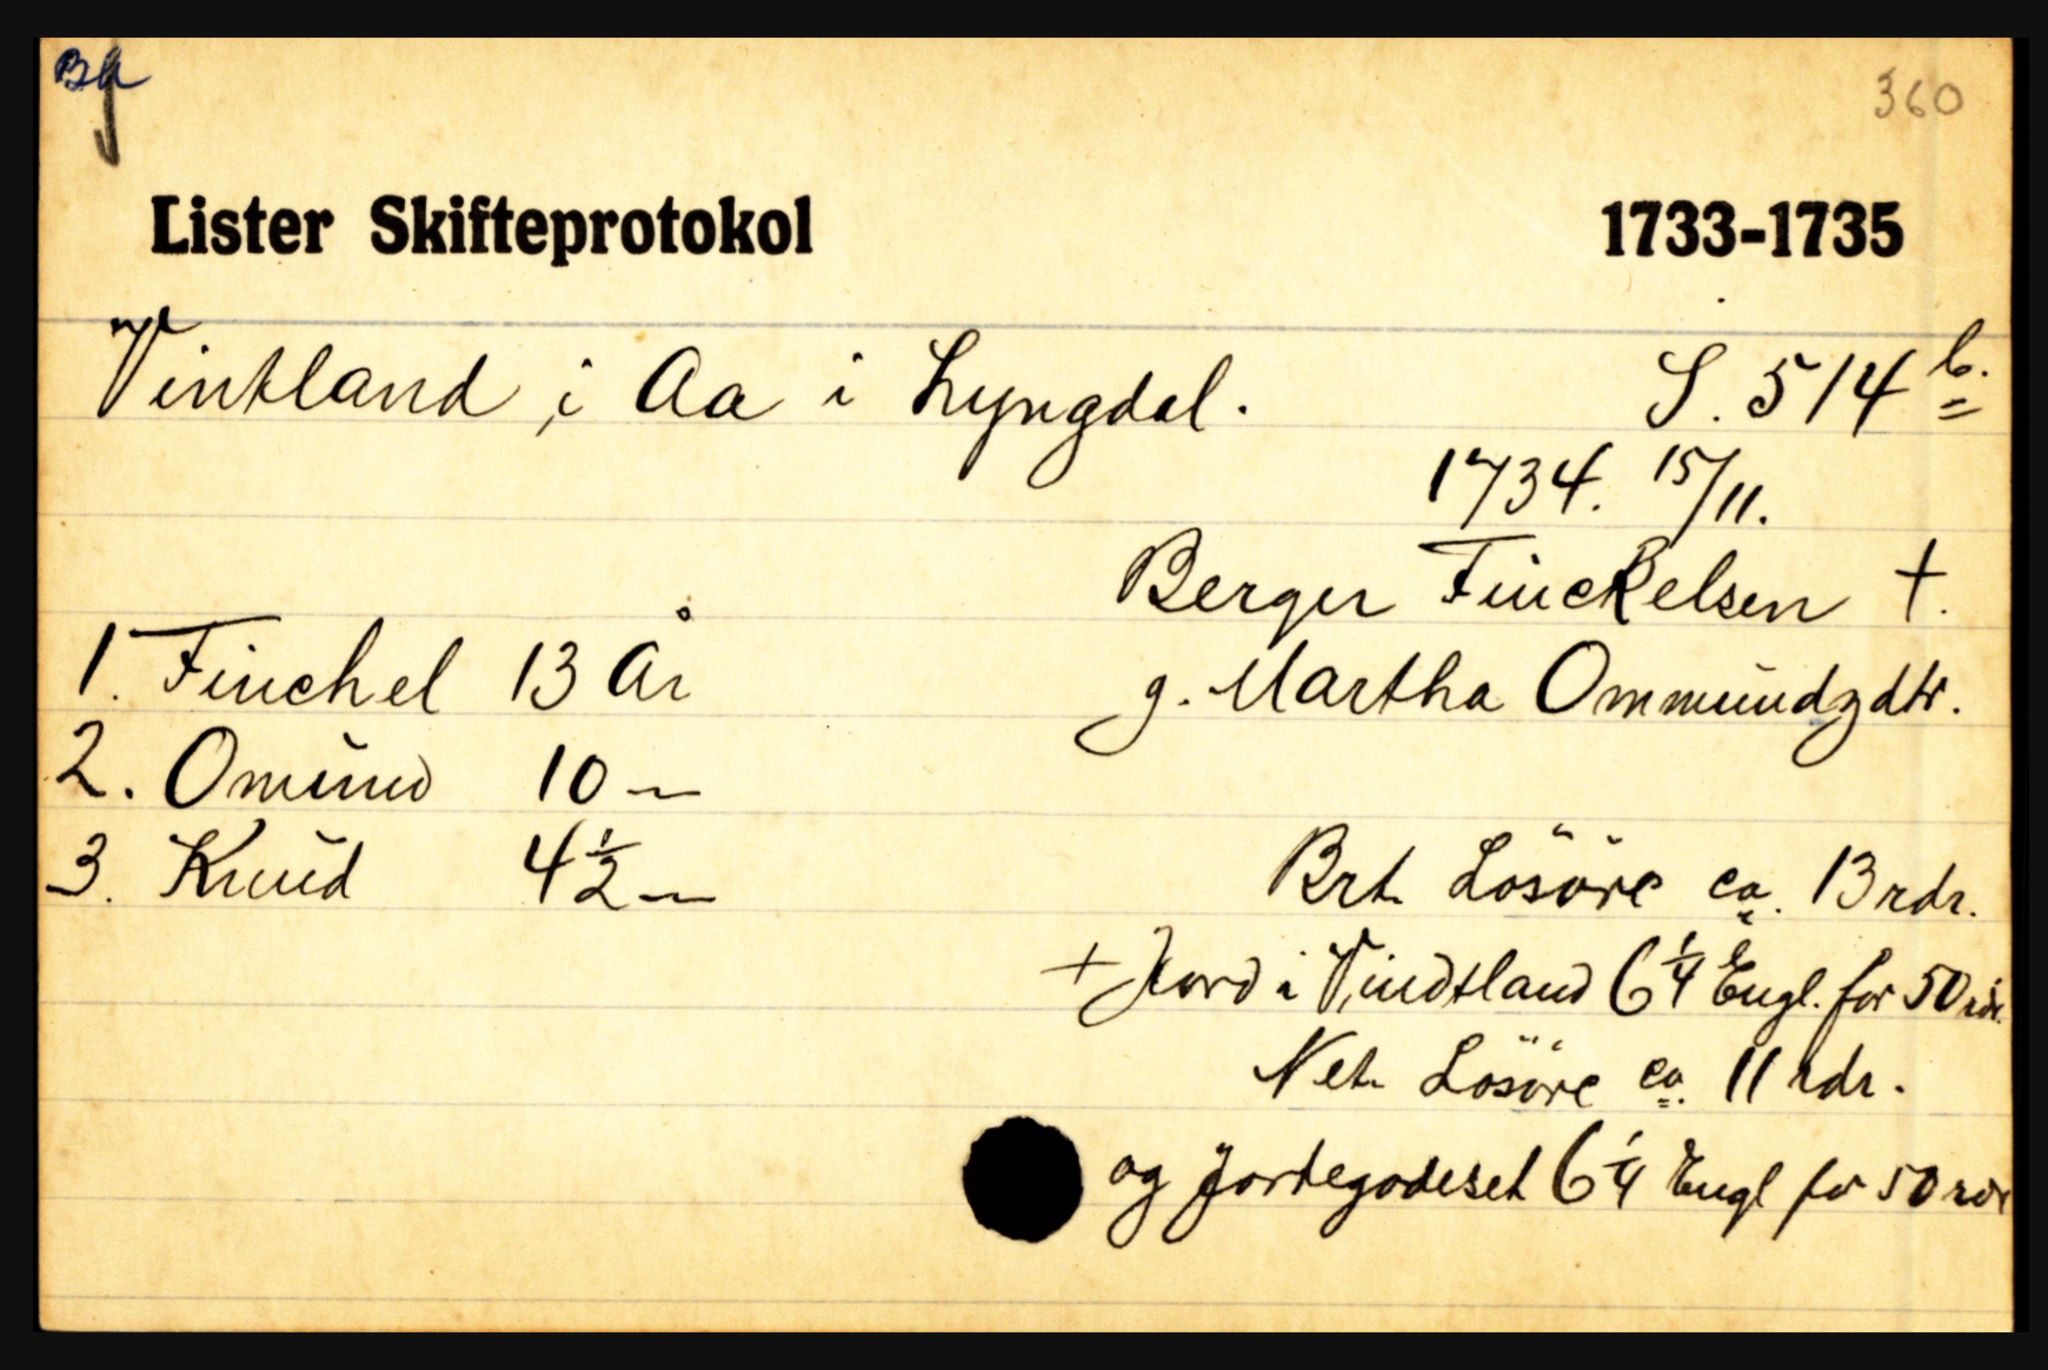 Ba
360
Lister Skifteprotokol 1733-1735
Vintland i Aa i Lyngdal. S. 514 b.
1734. 15/11.
Berger Finckelsen †.
1. Finchel 13 År g. Martha Ommundzdtr.
2. Omund 10 —
3. Knud 4 1/2 — Brt. Lösöre ca. 13 rdr.
+ Jord i Vindtland 6 1/4 Engl. for 50 rdr.
Net. Lösöre ca. 11 rdr.
og Jordegodeset 6 1/4 Engl for 50 rdr